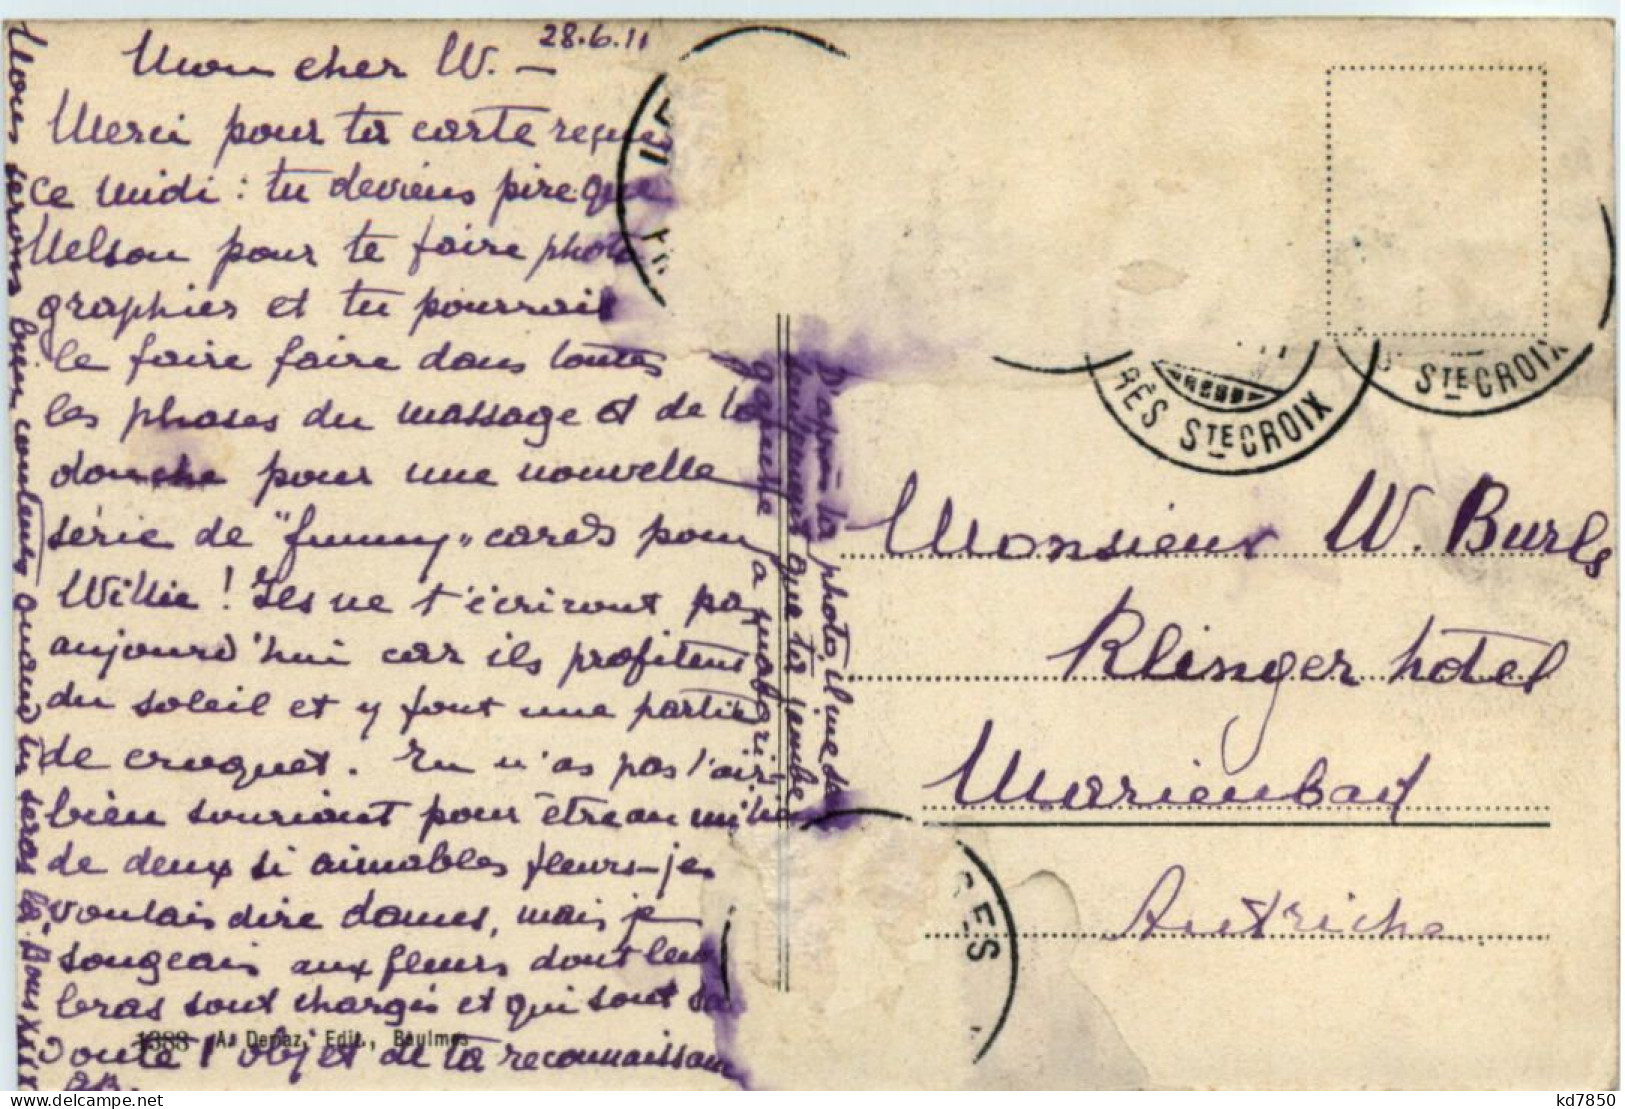 28.6.11
Mon cher W. —
Merci pour ta carte reçue
ce midi : tu deviens pire que
Nelson pour te faire photo
graphier et tu pourrais
le faire faire dans toutes
les phases du massage et de la
douche pour une nouvelle
série de "funny" cards pour
Willie ! Ils ne t'écriront pas
aujourd'hui car ils profitent
du soleil et y font une partie
de croquet. Tu n'as pas l'air
bien souriant pour être au milieu
de deux si aimables fleurs - je
voulais dire dames, mais je
songeais aux fleurs dont leurs
bras sont chargés et qui sont sans
doute l'objet de ta reconnaissance
Nous serons bien contents quand tu seras là. Bons
D'après la photo, il me semble
que ta jambe
gauche a maigri
1388 A. Deriaz, Edit., Baulmes
RÈS STE CROIX
STE CROIX
RES
Monsieur W. Burls
Klinger hotel
Marienbad
Autriche
kd7850